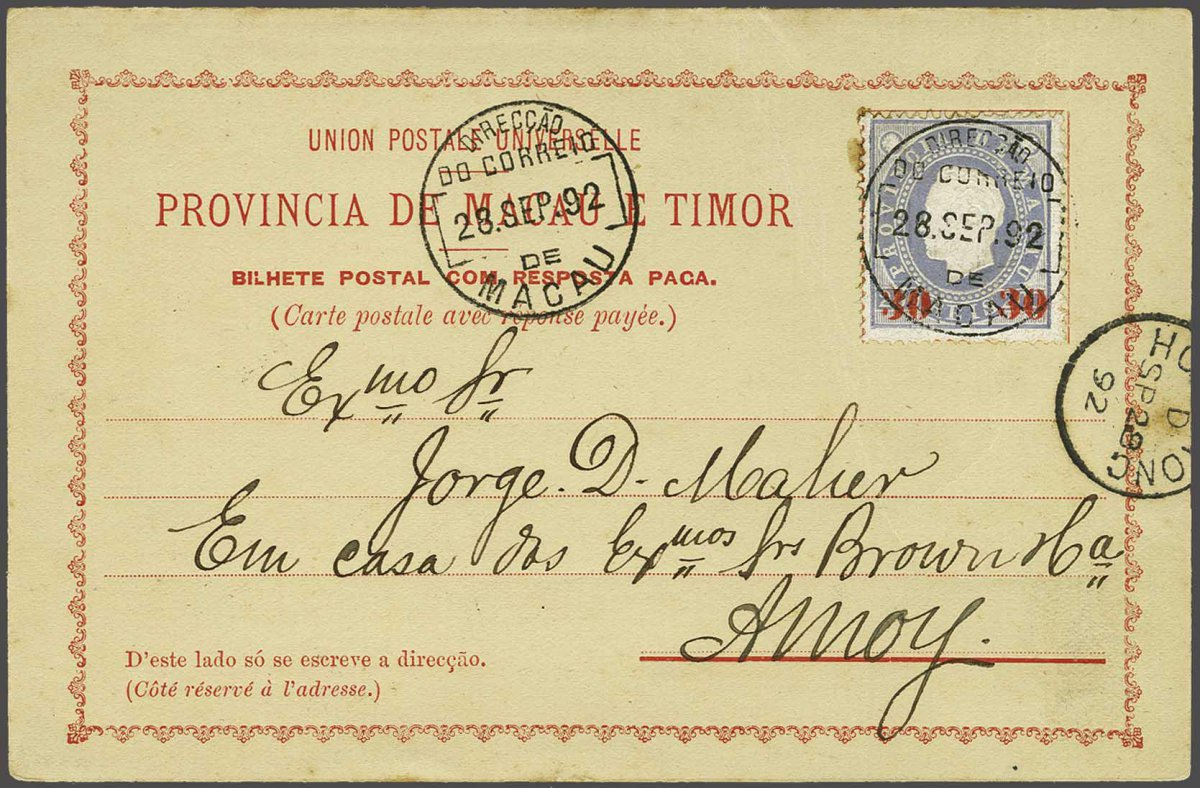 UNION POSTALE UNIVERSELLE
PROVINCIA DE MACAU E TIMOR
BILHETE POSTAL COM RESPOSTA PAGA.
(Carte postale avec réponse payée.)
DIRECÇÃO
DO CORREIO
28.SEP.92
DE
MACAU
DIRECÇÃO
DO CORREIO
28.SEP.92
DE
MACAU
30 30
HONG KONG
D
SP 29
92
Exmo Sr
Jorge. D. Maher
Em casa dos Exmos Srs Brown & Ca
Amoy.
D'este lado só se escreve a direcção.
(Côté réservé à l'adresse.)